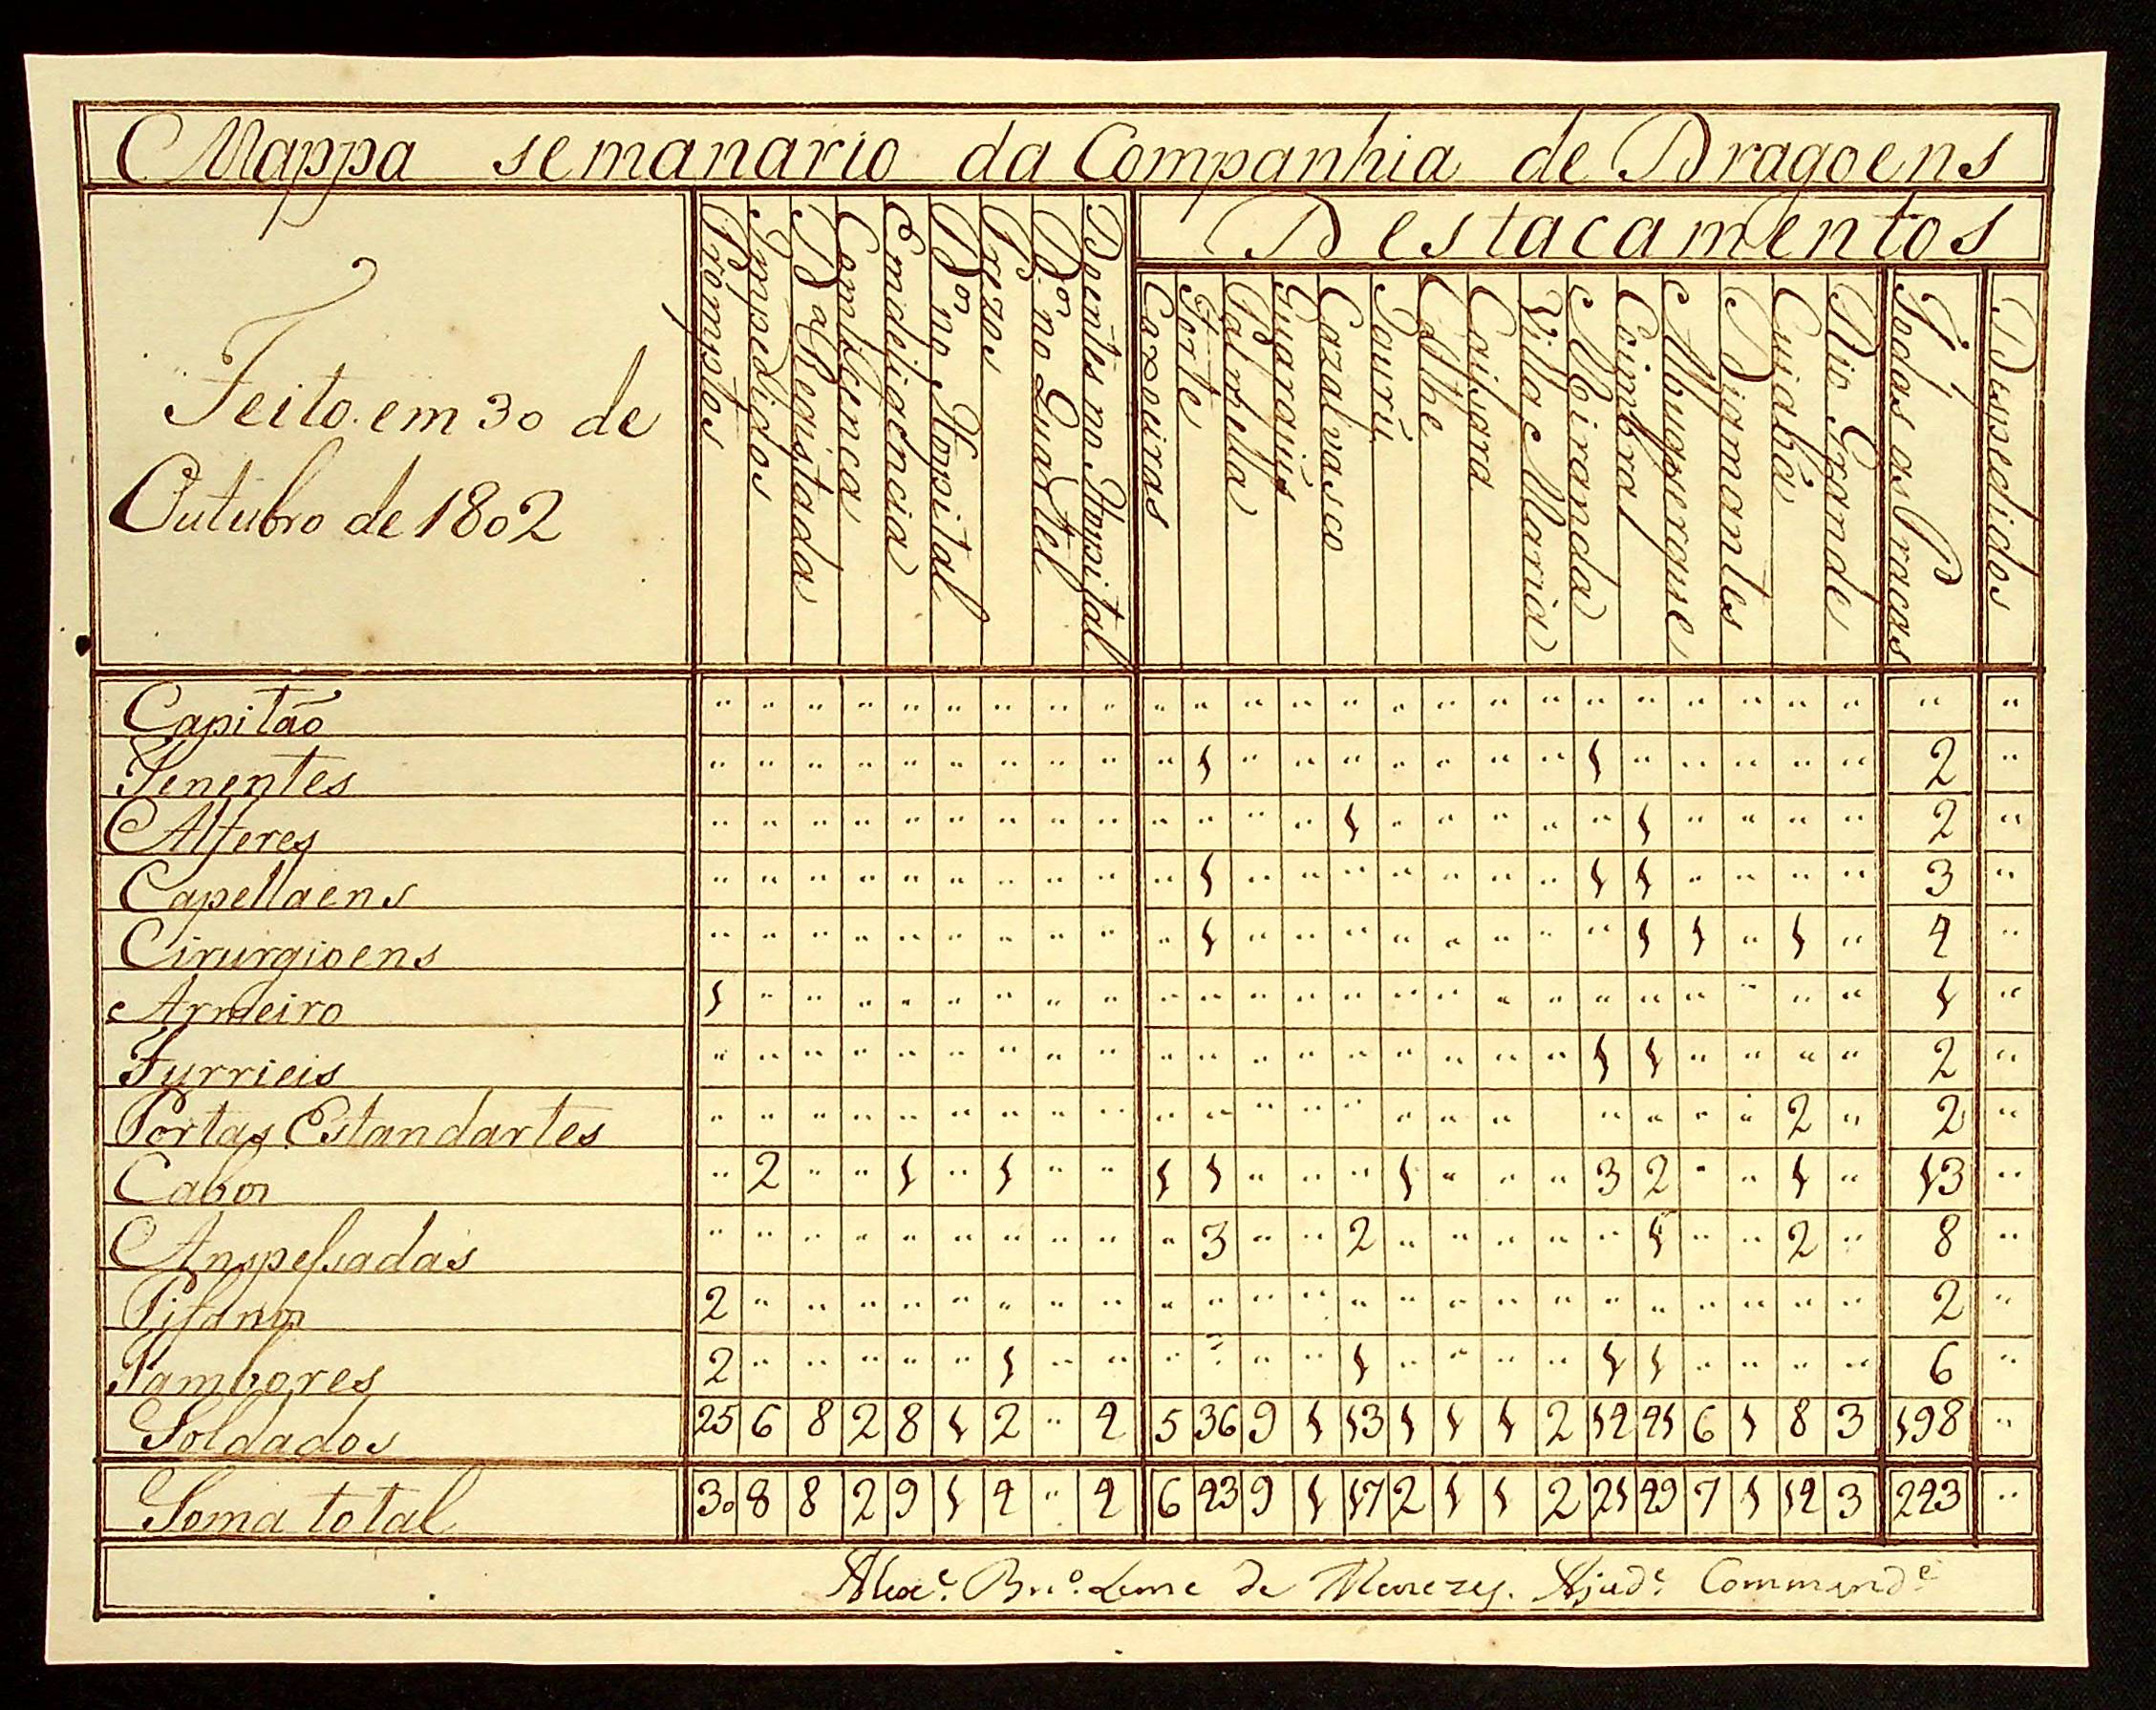 Mappa semanario da Companhia de Dragoens
Feito em 30 de
Outubro de 1802
Promptos
Impedidos
Com licença
Em deligencia
Dos no Hospital
Prezos
Dos no Quartel
Doentes no Hospital
Destacamentos
Cazoeiras
Forte
Palmella
Guarajús
Cazalvasco
Jaurú
Caissara
Villa Maria
Miranda
Coimbra
Albuquerque
Diamantes
Cuiabá
Rio Grande
Todas as Praças
Despedidos
Capitão " " " " " " " " " " " " " " " " " " " " " " " " " "
Tenentes " " " " " " " " " " 1 " " " " " " " 1 " " " " " 2 "
Alferes " " " " " " " " " " " " " 1 " " " " " 1 " " " " 2 "
Capellaens " " " " " " " " " " 1 " " " " " " " 1 1 " " " " 3 "
Cirurgioens " " " " " " " " " " 1 " " " " " " " " 1 1 " 1 " 4 "
Armeiro 1 " " " " " " " " " " " " " " " " " " " " " " " 1 "
Furrieis " " " " " " " " " " " " " " " " " " 1 1 " " " " 2 "
Portas Estandartes " " " " " " " " " " " " " " " " " " " " " 2 " 2 "
Cabos " 2 " " 1 " 1 " " 1 1 " " " 1 " " " 3 2 " " 1 " 13 "
Anspessadas " " " " " " " " " " 3 " " 2 " " " " " 1 " " 2 " 8 "
Pifanos 2 " " " " " " " " " " " " " " " " " " " " " " " 2 "
Tambores 2 " " " " " 1 " " " " " " 1 " " " " 1 1 " " " " 6 "
Soldados 25 6 8 2 8 1 2 " 4 5 36 9 1 13 1 1 1 2 14 41 6 1 8 3 198 "
Soma total 30 8 8 2 9 1 4 " 4 6 43 9 1 17 2 1 1 2 21 49 7 1 14 3 243 "
Alexe. Bno. Leme de Menezes. Ajude. Commande